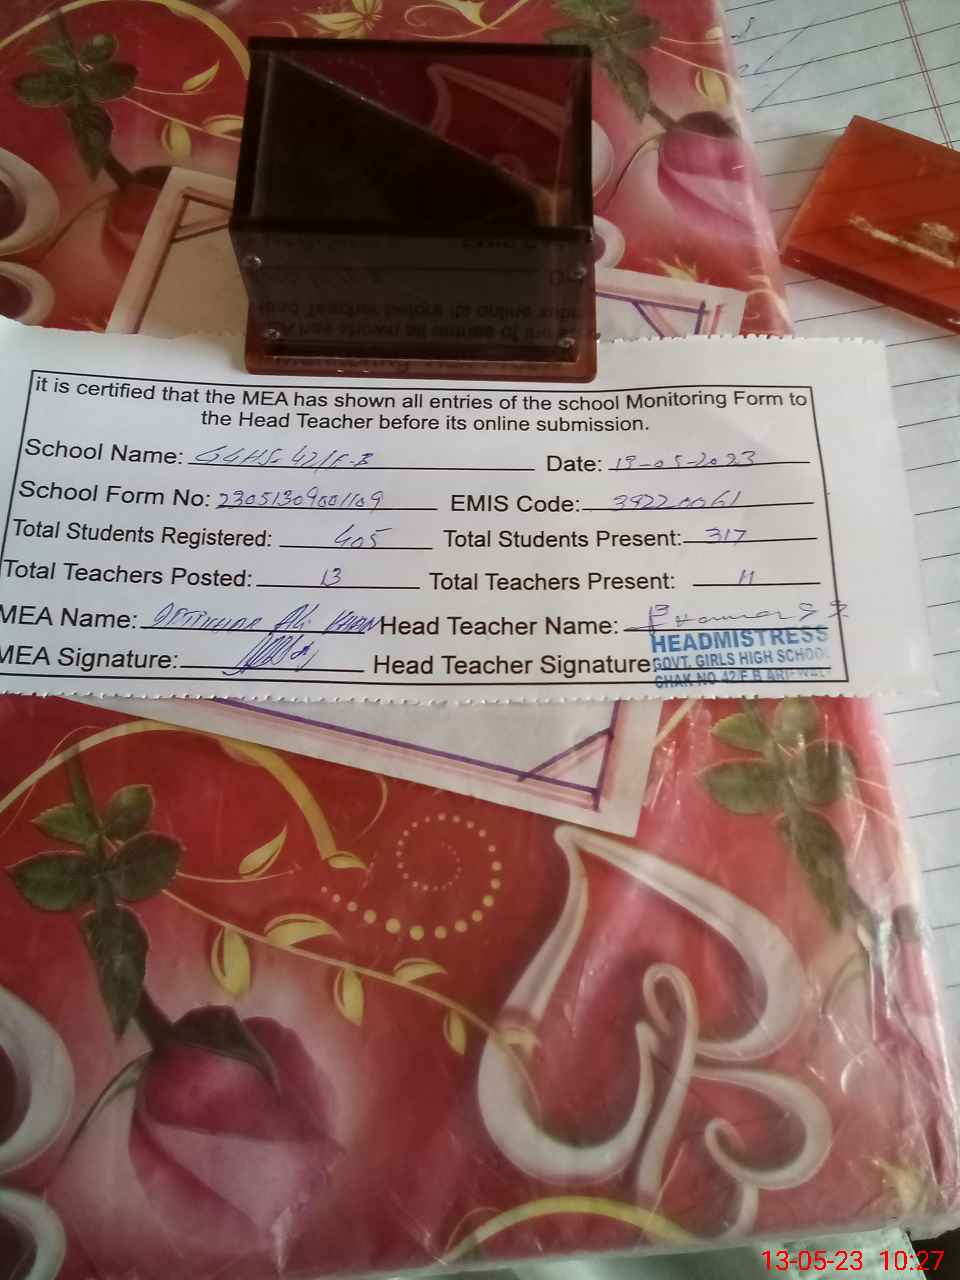 it is certified that the MEA has shown all entries of the school Monitoring Form to
the Head Teacher before its online submission.
School Name: GGHS 42/F-B Date: 13-05-2023
School Form No: 23051309001109 EMIS Code: 39220061
Total Students Registered: 405 Total Students Present: 317
Total Teachers Posted: 13 Total Teachers Present: 11
MEA Name: Iftikhar Ali Khan Head Teacher Name:
MEA Signature: Head Teacher Signature
HEADMISTRESS
GOVT. GIRLS HIGH SCHOOL
CHAK NO 42/F B ARIFWALA
13-05-23 10:27